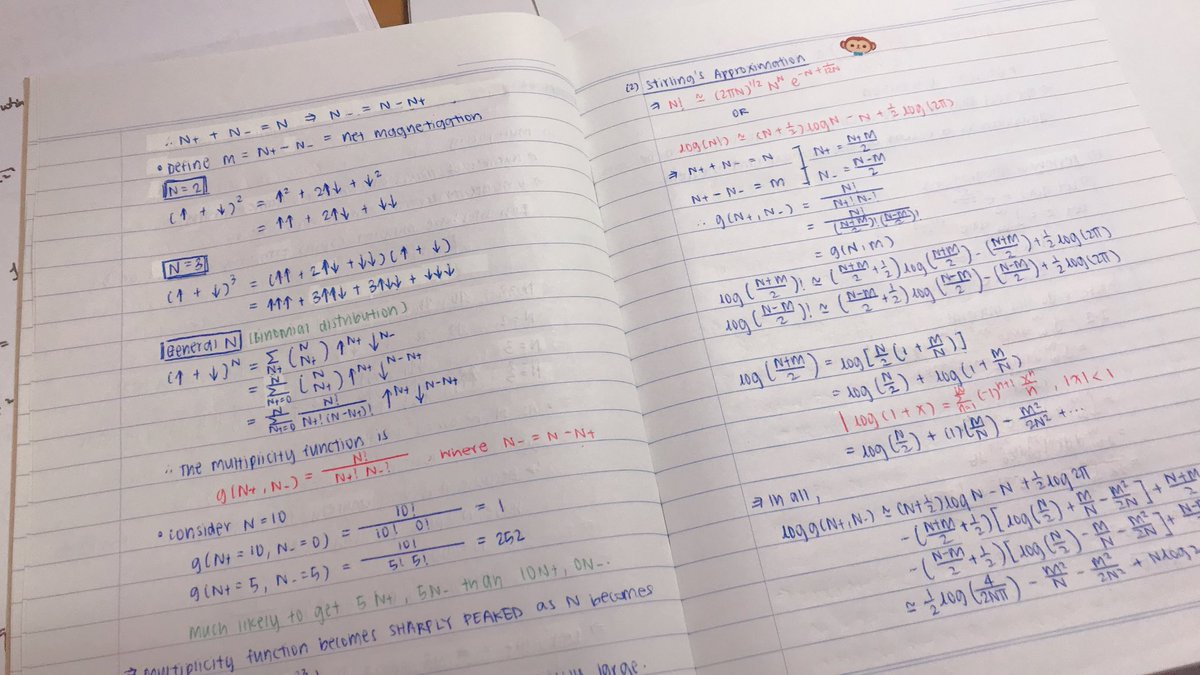 ∴ N+ + N- = N ⇒ N- = N - N+
• Define M = N+ - N- = net magnetization
N=2
(↑ + ↓)² = ↑² + 2↑↓ + ↓²
= ↑↑ + 2↑↓ + ↓↓
N=3
(↑ + ↓)³ = (↑↑ + 2↑↓ + ↓↓)(↑ + ↓)
= ↑↑↑ + 3↑↑↓ + 3↑↓↓ + ↓↓↓
General N (Binomial distribution)
(↑ + ↓)^N = Σ_{N+} (N N+) ↑^{N+} ↓^{N-}
= Σ_{N+=0}^{N} (N N+) ↑^{N+} ↓^{N-N+}
= Σ_{N+=0}^{N} N!/(N+! (N-N+)!) ↑^{N+} ↓^{N-N+}
∴ The multiplicity function is
g(N+, N-) = N!/(N+! N-!), where N- = N - N+
• Consider N=10
g(N+=10, N-=0) = 10!/(10! 0!) = 1
g(N+=5, N-=5) = 10!/(5! 5!) = 252
Much likely to get 5N+, 5N- than 10N+, 0N-.
⇒ Multiplicity function becomes SHARPLY PEAKED as N becomes
large.
(2) Stirling's Approximation
⇒ N! ≃ (2πN)^{1/2} N^N e^{-N + 1/12N}
OR
log(N!) ≃ (N+½) log N - N + ½ log(2π)
⇒ N+ + N- = N ] N+ = (N+M)/2
N+ - N- = M ] N- = (N-M)/2
∴ g(N+, N-) = N!/(N+! N-!)
= N!/(((N+M)/2)! ((N-M)/2)!)
= g(N, M)
log((N+M)/2)! ≃ ((N+M)/2 + ½) log((N+M)/2) - ((N+M)/2) + ½ log(2π)
log((N-M)/2)! ≃ ((N-M)/2 + ½) log((N-M)/2) - ((N-M)/2) + ½ log(2π)
log((N+M)/2) = log[N/2 (1 + M/N)]
= log(N/2) + log(1 + M/N)
| log(1+x) = Σ_{n=1}^{∞} (-1)^{n+1} x^n/n, |x|<1
= log(N/2) + (1)(M/N) - M²/2N² + ...
⇒ In all,
log g(N+, N-) ≃ (N+½) log N - N + ½ log 2π
- ((N+M)/2 + ½) [log(N/2) + M/N - M²/2N] + N+M
- ((N-M)/2 + ½) [log(N/2) - M/N - M²/2N] +
≃ ½ log(4/2Nπ) - M²/N - M²/2N² + N log